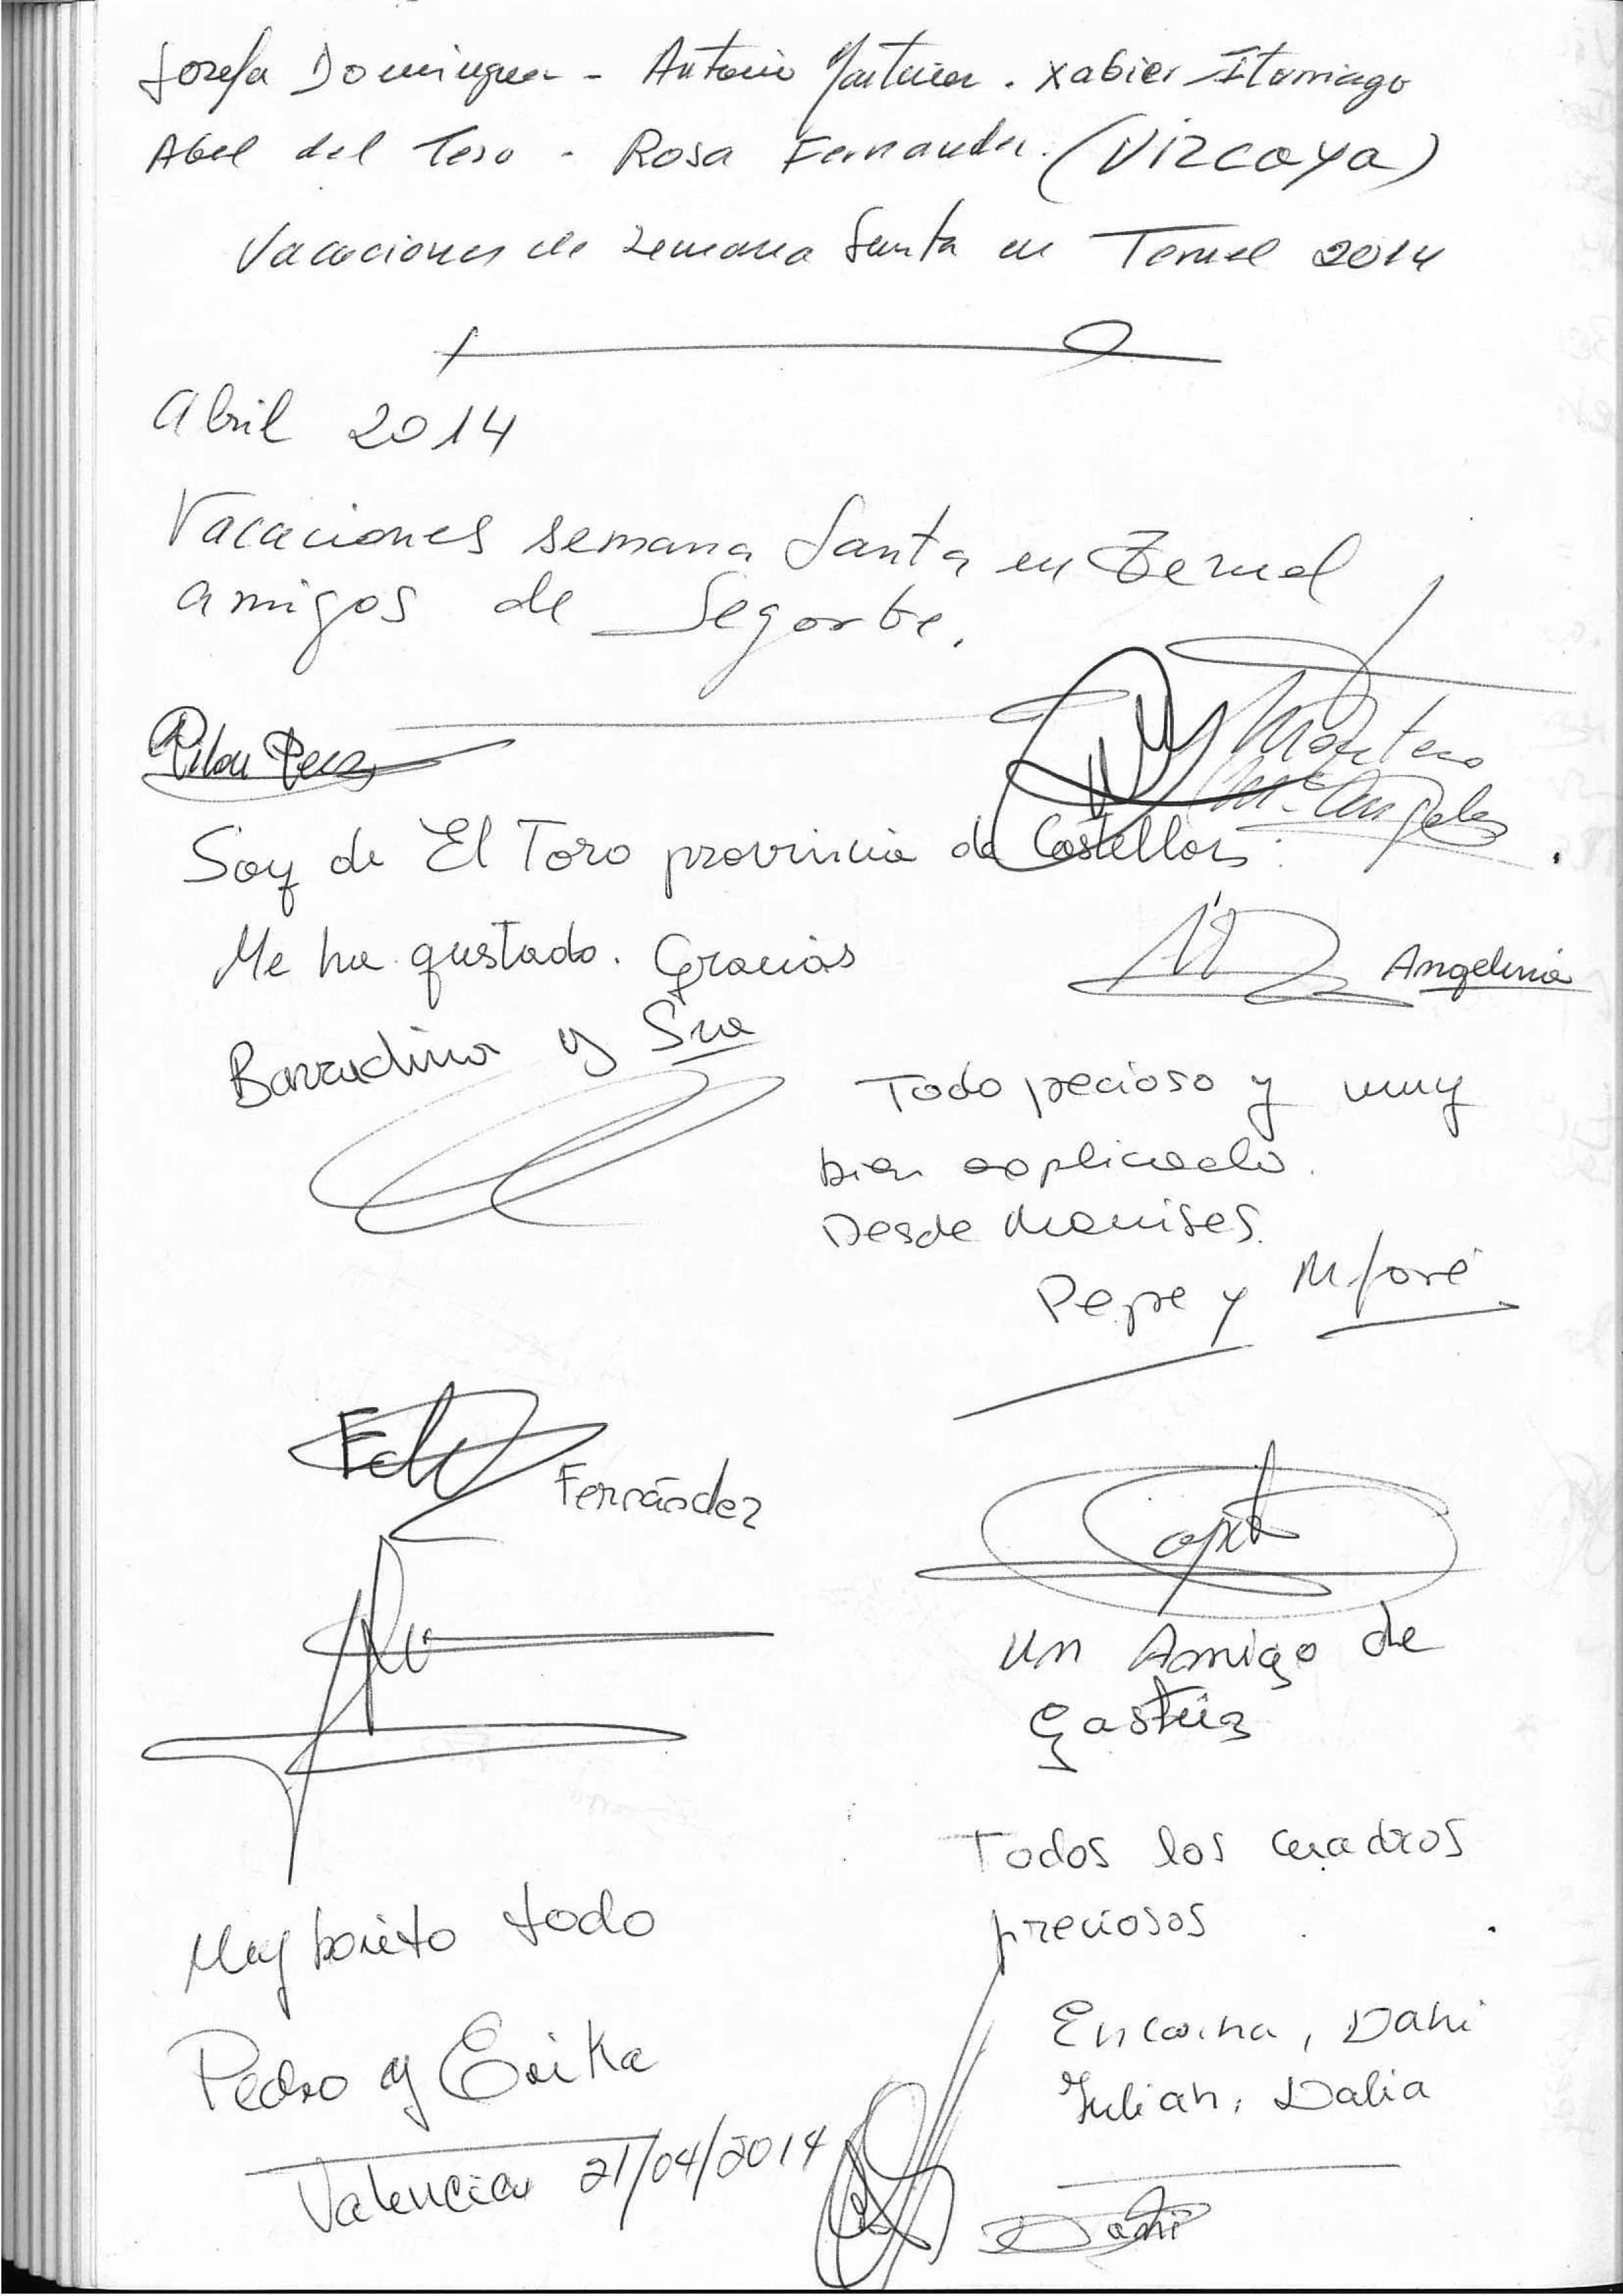 Josefa Dominguez - Antonio Martinez . Xabier Iturriaga
Abel del Teso - Rosa Fernandez. (VIZCAYA)
Vacaciones de Semana Santa en Teruel 2014
Abril 2014
Vacaciones semana Santa en Teruel
amigos de Segorbe.
Pilar Perez
Montero
Mª Angeles
Soy de El Toro provincia de Castellon.
Me ha gustado. Gracias
Angelina
y Sra
Todo precioso y muy
bien explicado.
Desde Manises.
Pepe y M José
Fernández
un Amigo de
Todos los cuadros
preciosos
Muy bonito todo
Encarna, Dani
Julian, Dalia
Pedro y Erika
Valencia 21/04/2014
Dani